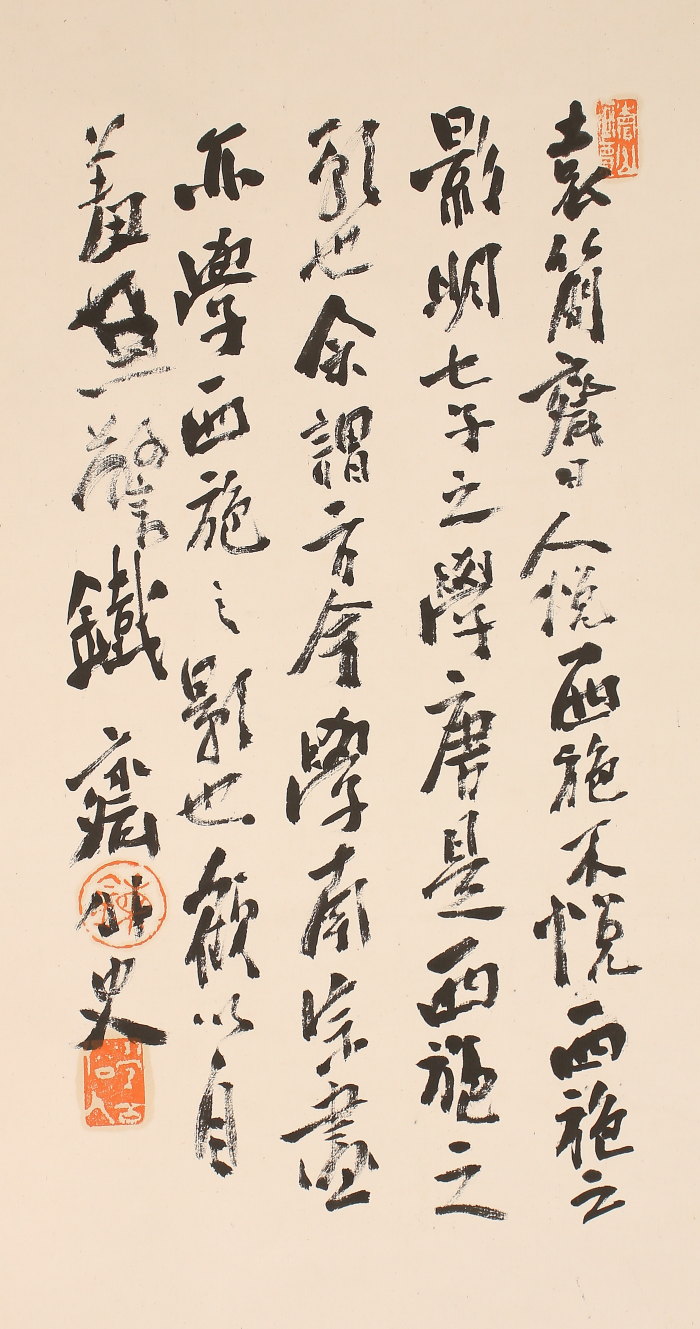 袁簡齋曰人悅西施不悅西施之
影明七子之學唐是西施之
影也余謂方今學南宗畫
亦學西施之影也顧以自
羞警鐵齋外史